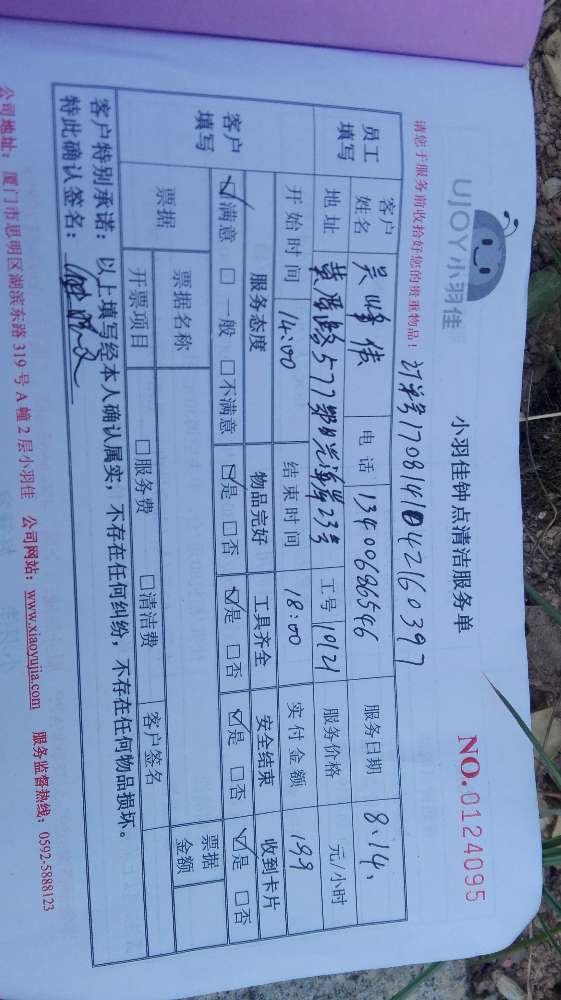 UJOY小羽佳
小羽佳钟点清洁服务单
NO.0124095
请您于服务前收拾好您的贵重物品！
订单号170814104216 0397
员工填写 客户姓名 吴峰伟 电话 13400686546 服务日期 8.14.
地址 577 23号 工号 10121 服务价格 元/小时
开始时间 14:00 结束时间 18:00 实付金额 199
客户填写 服务态度 物品完好 工具齐全 安全结束 收到卡片
☑满意 □一般 □不满意 ☑是 □否 ☑是 □否 ☑是 □否 ☑是 □否
票据 票据名称 票据金额
开票项目 □服务费 □清洁费 客户签名
客户特别承诺：以上填写经本人确认属实，不存在任何纠纷，不存在任何物品损坏。
特此确认签名：
公司地址：厦门市思明区湖滨东路319号A幢2层小羽佳 公司网站：www.xiaoyujia.com 服务监督热线：0592-5888123